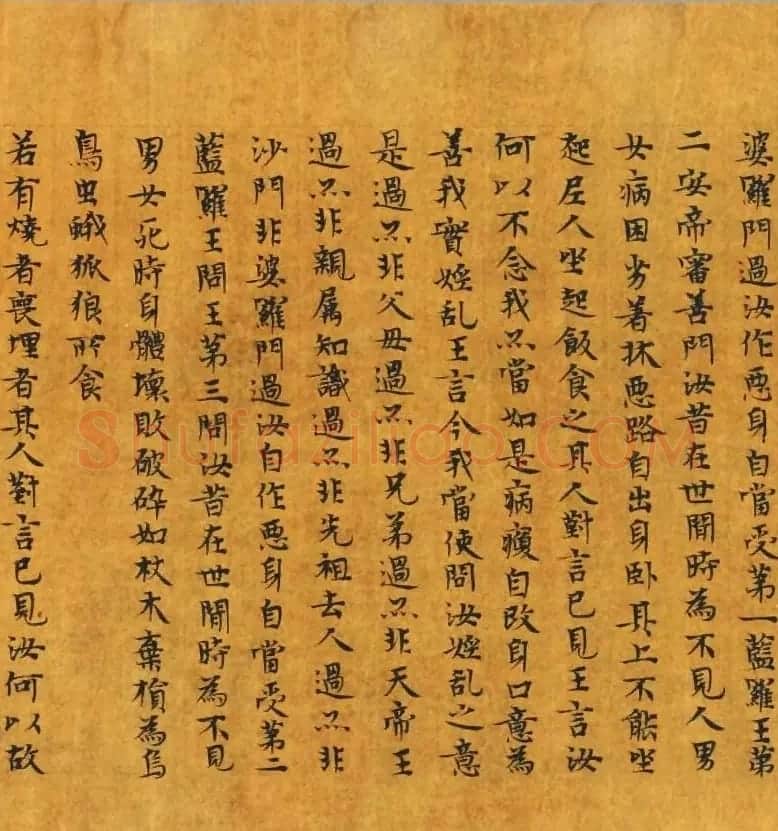 婆羅門過汝作惡身自當受第一藍羅王第
二安帝審善問汝昔在世間時為不見人男
女病困劣著牀惡路自出身卧其上不能坐
起居人坐起飯食之其人對言已見王言汝
何以不念我亦當如是病癩自改身口意為
善我實婬乱王言今我當使問汝婬乱之意
是過亦非父母過亦非兄弟過亦非天帝王
過亦非親属知識過亦非先祖去人過亦非
沙門非婆羅門過汝自作惡身自當受第二
藍羅王問王第三問汝昔在世間時為不見
男女死時身體壞敗破碎如杖木棄損為烏
鳥虫蛾狐狼所食
若有燒者喪埋者其人對言已見汝何以故
shufaziliao.COM